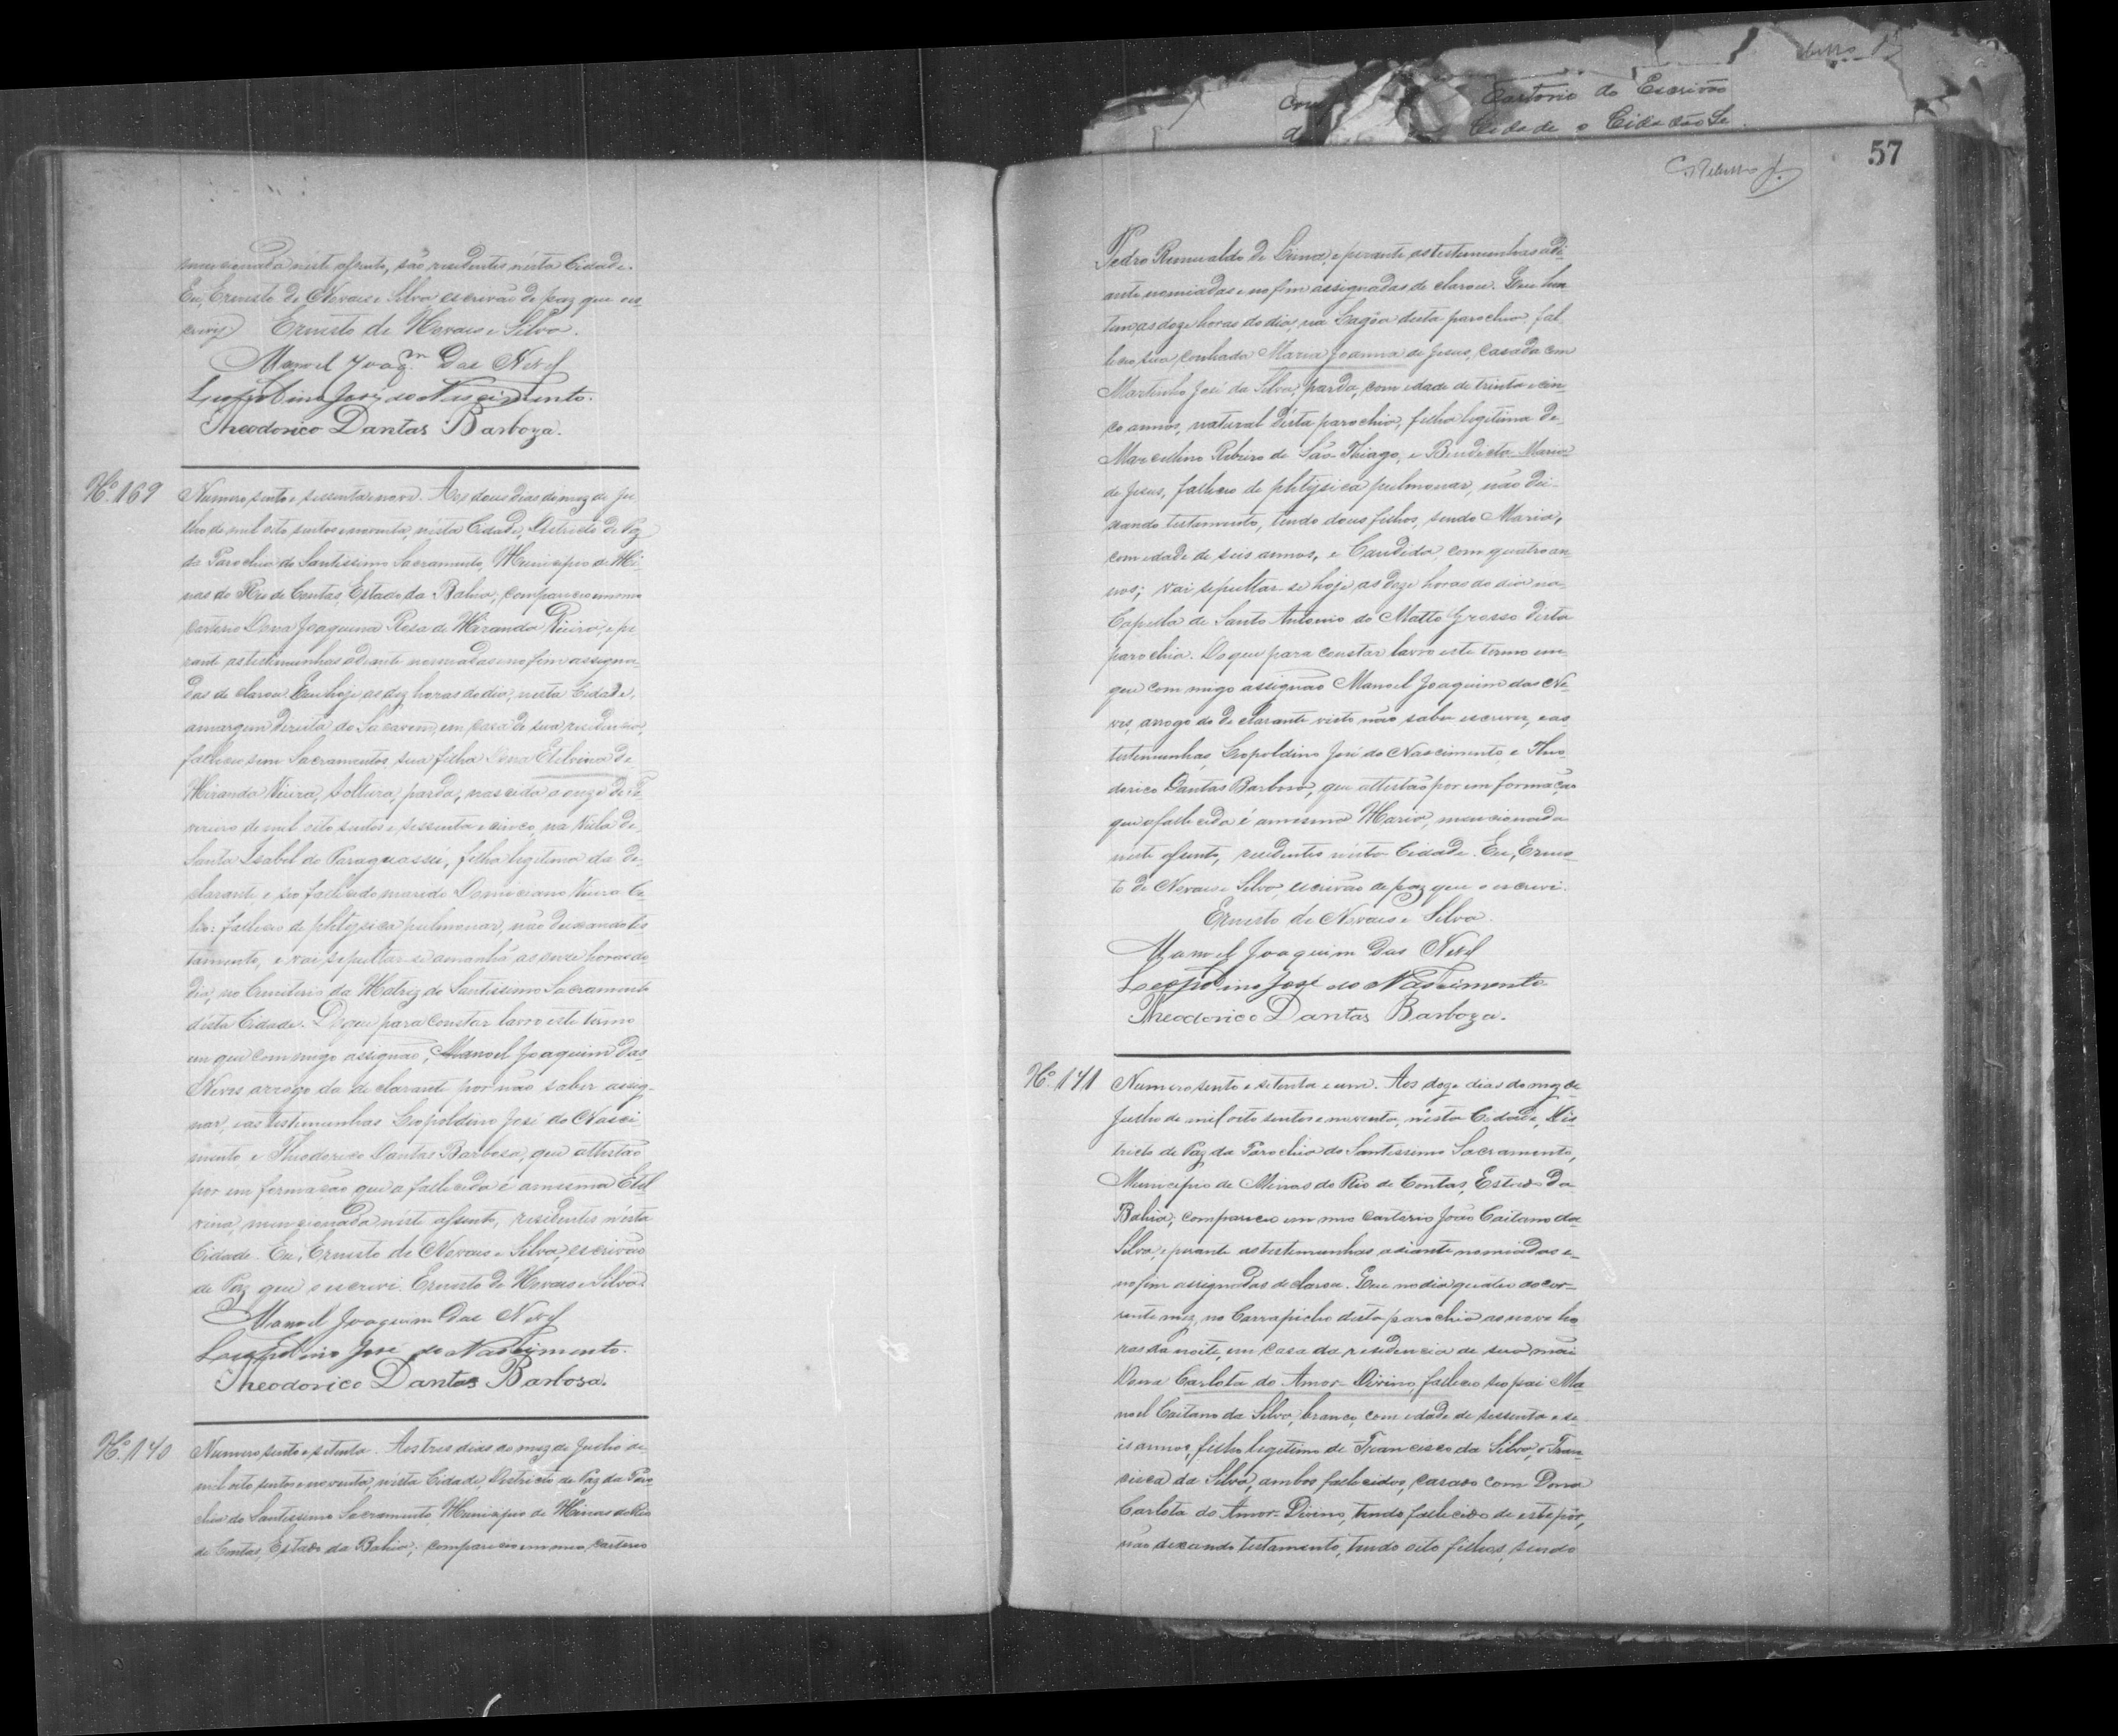 mencionada néste assento, são residentes nésta Cidade.
Eu, Ernesto de Novaes e Silva escrivão de paz que es-
crevi Ernesto de Novaes e Silva.
Manoel Joaqm. Das Neves
Leopoldino José do Nascimento.
Theodorico Dantas Barboza.
No. 169
Numero sento e sessenta e nove. Aos dous dias do mez de Ju-
lho de mil oito sentos e noventa, nésta Cidade, Districto de Paz
da Parochia do Santissimo Sacramento, Municipio de Mi-
nas do Rio de Contas, Estado da Bahia, compareceu em meu
cartorio Dona Joaquina Rosa de Miranda Vieira, e pe-
rante as testimunhas adiante nomiadas e no fim assigna-
das declarou. Que hoje, as dez horas do dia, nesta Cidade,
a margem direita do em casa de sua residencia,
falleceu sem Sacramentos, sua filha Dona Etelvina de
Miranda Vieira, solteira, parda, nascida a onze de Fe-
vereiro de mil oito sentos e sessenta e cinco, na Villa de
Santa Isabel do Paraguassú, filha legitima da de-
clarante e seo fallecido marido Domiciano Vieira
falleceo de phtysica pulmonar, não deixando tes-
tamento, e vai sepultar-se amanhã as onze horas do
dia, no Cemiterio da Matriz do Santissimo Sacramento
désta Cidade. Do que para constar lavro este termo
em que commigo assignão, Manoel Joaquim das
Neves arrogo da declarante por não saber assig-
nar, e as testimunhas Leopoldino José do Nasci-
mento e Theodorico Dantas Barbosa, que attestão
por em formação que a fallecida é a mesma Etel-
vina, mencionada néste assento, residentes nésta
Cidade. Eu, Ernesto de Novaes e Silva, escrivão
de Paz que o escrevi. Ernesto de Novaes e Silva.
Manoel Joaquim Das Neves
Leopoldino José do Nascimento.
Theodorico Dantas Barbosa.
No. 170
Numero sento e setenta. Aos tres dias do mez de Julho de
mil oito sentos e noventa, nésta Cidade, Districto de Paz da Paro-
chia do Santissimo Sacramento, Municipio de Minas do Rio
de Contas, Estado da Bahia, compareceu em meu cartorio
Cartorio do Escrivão
Cidade o Cidadão
57
Pedro Romualdo de Lima, e perante as testemunhas adi-
ante nomiadas e no fim assignadas declarou. Que hon-
tem as doze horas do dia, na Lagôa desta parochia, fal-
leceo sua cunhada Maria Joanna de Jesus, casada com
Martinho José da Silva, parda, com edade de trinta e cin-
co annos, natural désta parochia, filha legitima de
Marcellino Ribeiro de São Thiago, e Benedicta Maria
de Jesus, falleceo de phtysica pulmonar, não dei-
xando testamento, tendo dous filhos, sendo Maria,
com edade de seis annos, e Candida com quatro an-
nos; vai sepultar-se hoje, as doze horas do dia na
Capella de Santo Antonio do Matto Grosso désta
parochia. Do que para constar lavro este termo em
que commigo assignão Manoel Joaquim das Ne-
ves, arrogo do declarante visto não saber escrever, e as
testemunhas, Leopoldino José do Nascimento e Theo-
dorico Dantas Barbosa, que attestão por em formação
que a fallecida é a mesma Maria, mencionada
néste assento, residentes nésta Cidade. Eu, Ernes-
to de Novaes e Silva, escrivão de paz que o escrevi.
Ernesto de Novaes e Silva.
Manoel Joaquim Das Neves
Leopoldino José do Nascimento
Theodorico Dantas Barboza.
No. 171
Numero sento e setenta e um. Aos doze dias do mez de
Julho de mil oito sentos e noventa, nésta Cidade, Dis-
tricto de Paz da Parochia do Santissimo Sacramento,
Municipio de Minas do Rio de Contas, Estado da
Bahia, compareceu em meu cartorio João Caitano da
Silva, e perante as testemunhas adiante nomiadas e
no fim assignadas declarou. Que no dia quatro do cor-
rente mez, no Carrapicho désta parochia as nove ho-
ras da noite, em casa da residencia de sua mãi
Dona Carlota do Amor-Divino, falleceo seo pai Ma-
noel Caitano da Silva, branco, com edade de sessenta e se-
is annos, filho legitimo de Francisco da Silva, e Fran-
cisca da Silva, ambos fallecidos, casado com Dona
Carlota do Amor-Divino, tendo fallecido de estopôr,
não dexando testamento, tendo oito filhos, sendo